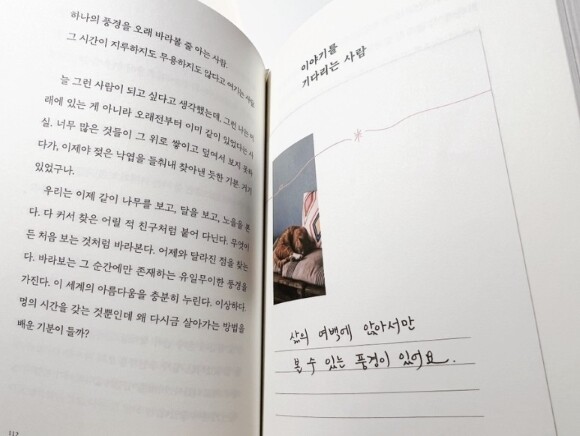 하나의 풍경을 오래 바라볼 줄 아는 사람.
그 시간이 지루하지도 무용하지도 않다고 여기는 사람.
늘 그런 사람이 되고 싶다고 생각했는데, 그런 나는 미
래에 있는 게 아니라 오래전부터 이미 같이 있었다는 사
실. 너무 많은 것들이 그 위로 쌓이고 덮여서 보지 못하
다가, 이제야 젖은 낙엽을 들춰내 찾아낸 듯한 기분. 거기
있었구나.
우리는 이제 같이 나무를 보고, 달을 보고, 노을을 본
다. 다 커서 찾은 어릴 적 친구처럼 붙어 다닌다. 무엇이
든 처음 보는 것처럼 바라본다. 어제와 달라진 점을 찾는
다. 바라보는 그 순간에만 존재하는 유일무이한 풍경을
가진다. 이 세계의 아름다움을 충분히 누린다. 이상하다.
멍의 시간을 갖는 것뿐인데 왜 다시금 살아가는 방법을
배운 기분이 들까?
이야기를
기다리는 사람
삶의 여백에 앉아서만
볼 수 있는 풍경이 있어요.